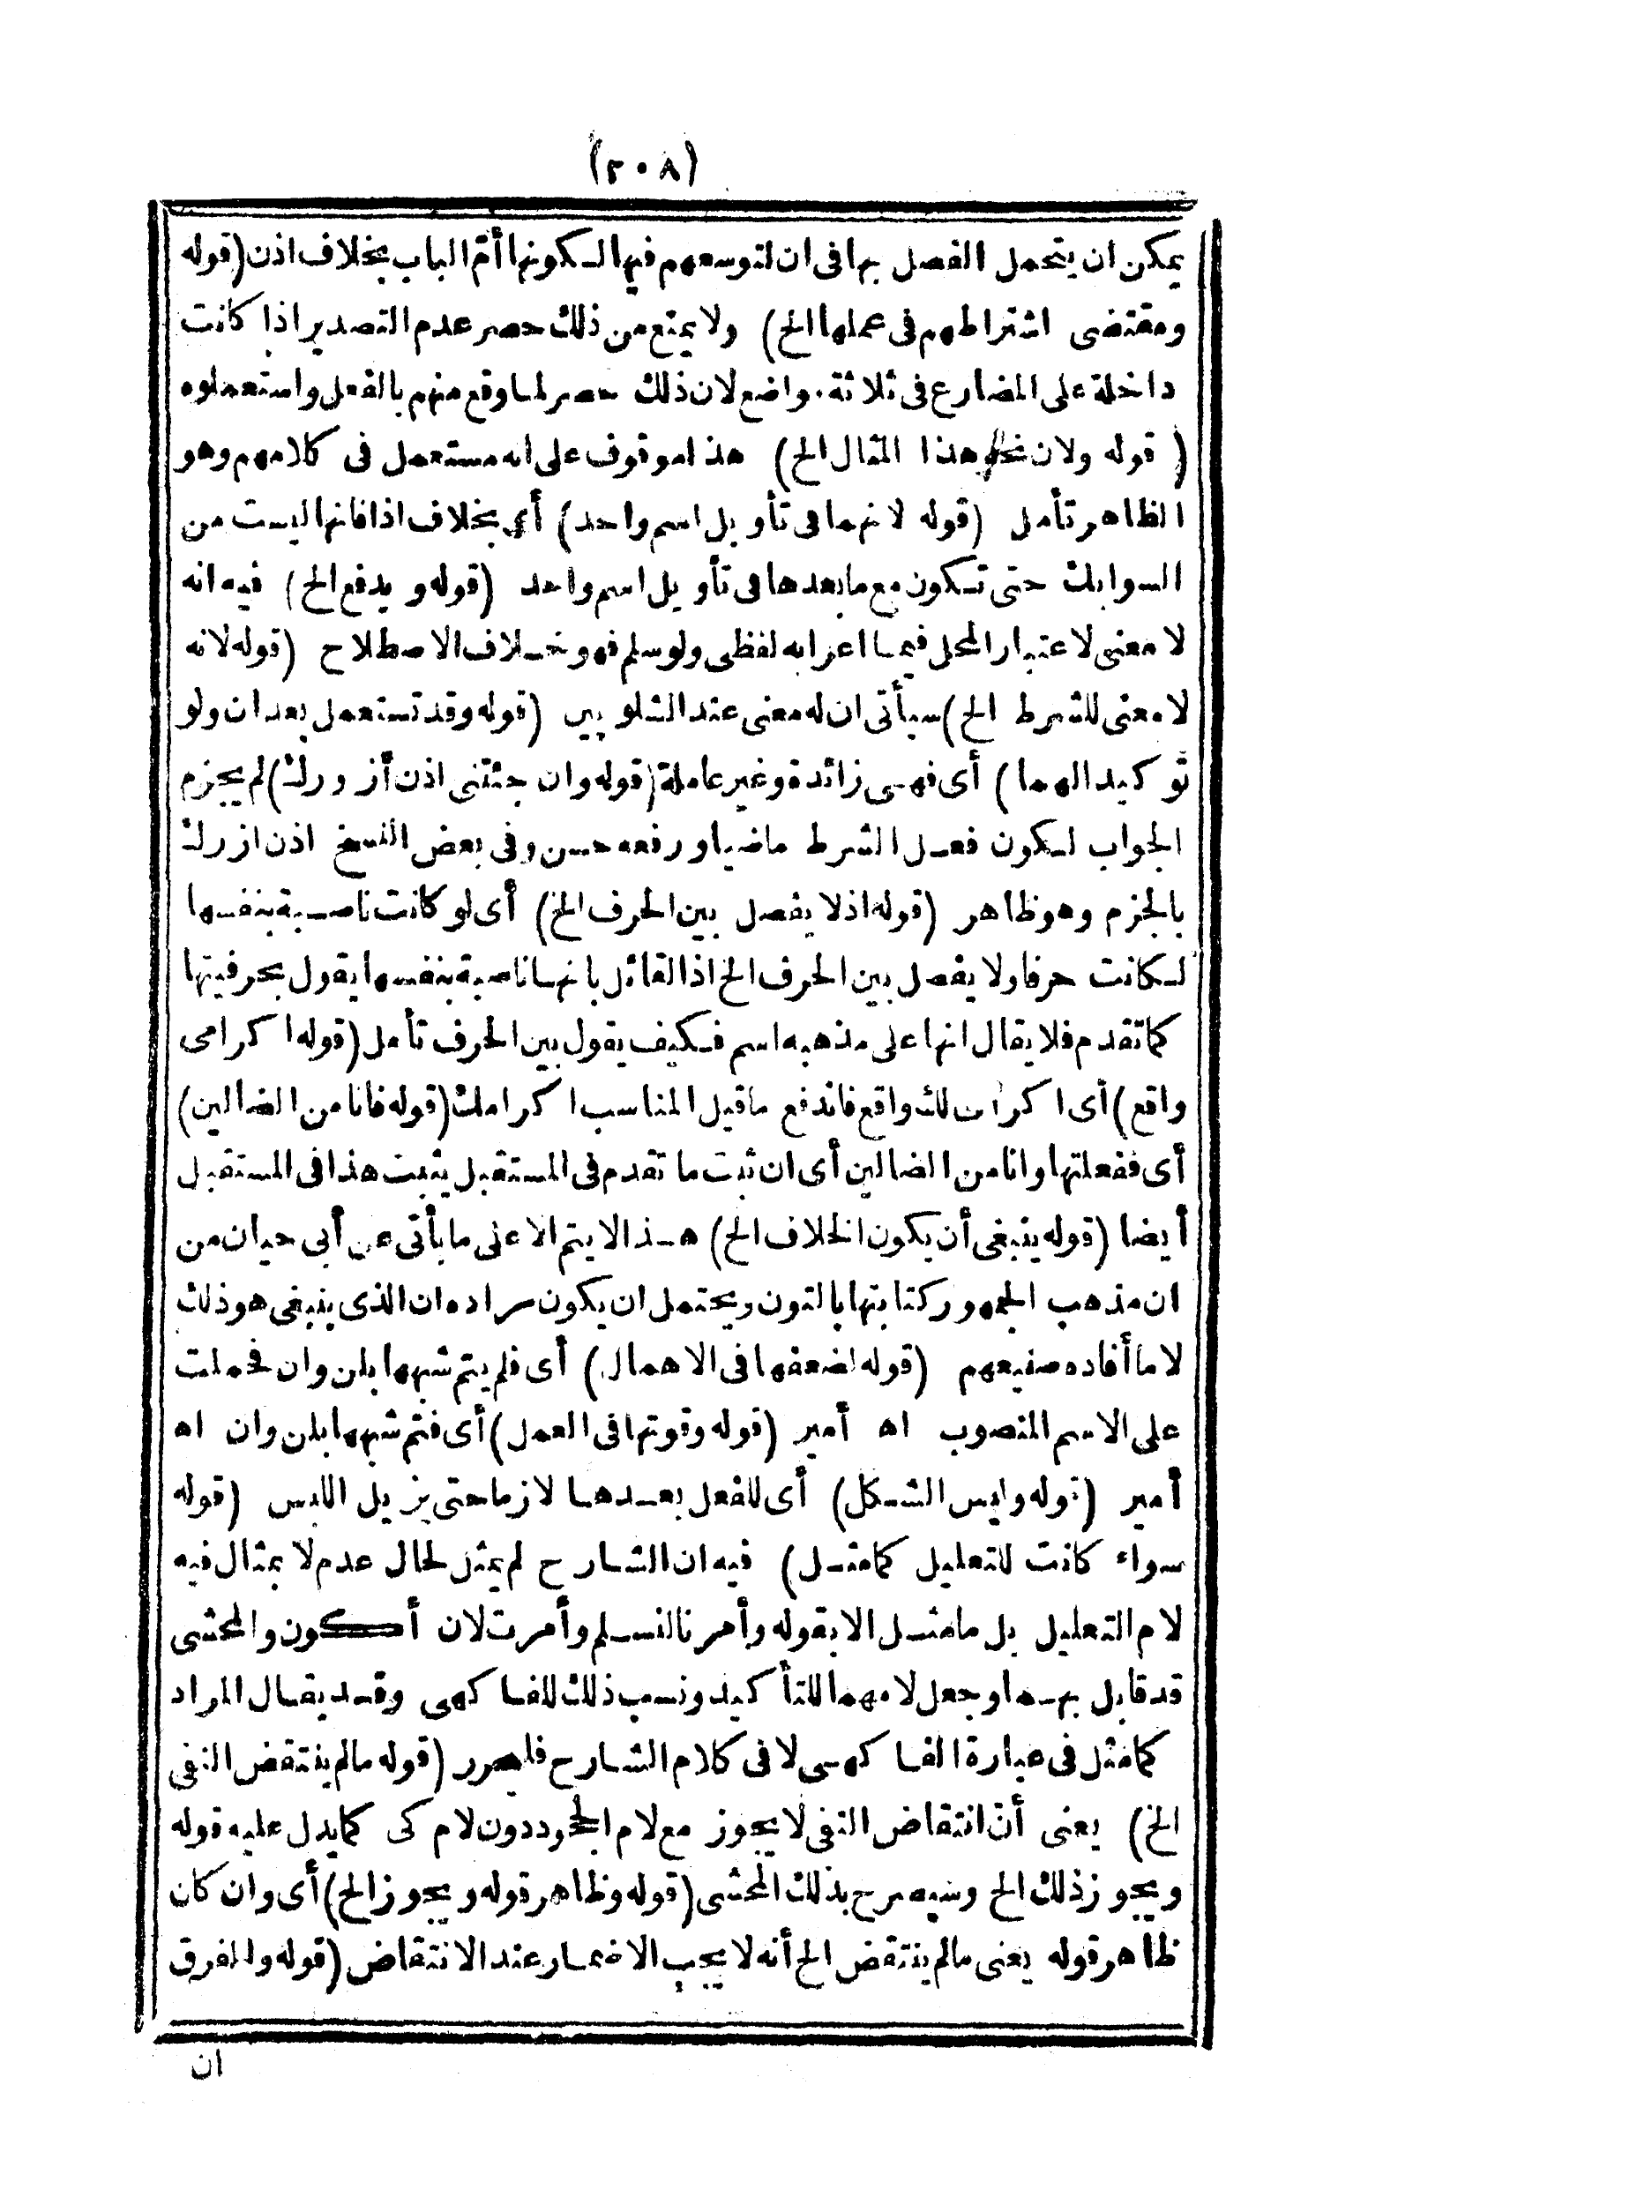 (٢٠٨)
يمكن ان يتحمل الفصل بها فى ان لتوسعهم فيها لكونها أمّ الباب بخلاف اذن (قوله
ومقتضى اشتراطهم فى عملها الخ) ولا يمنع من ذلك حصر عدم التصدير اذا كانت
داخلة على المضارع فى ثلاثة مواضع لان ذلك حصر لما وقع منهم بالفعل واستعملوه
(قوله ولان نحو هذا المثال الخ) هذا موقوف على انه مستعمل فى كلامهم وهو
الظاهر تأمل (قوله لانهما فى تأويل اسم واحد) أى بخلاف اذا فانها ليست من
السوابك حتى تكون مع ما بعدها فى تأويل اسم واحد (قوله ويدفع الخ) فيه انه
لا معنى لاعتبار المحل فيما اعرابه لفظى ولو سلم فهو خلاف الاصطلاح (قوله لانه
لا معنى للشرط الخ) سيأتى ان له معنى عند الشلوبين (قوله وقد تستعمل بعد ان ولو
توكيدا لهما) أى فهى زائدة وغير عاملة (قوله وان جئتنى اذن أزورك) لم يجزم
الجواب لكون فعل الشرط ماضيا ورفعه حسن وفى بعض النسخ اذن ازرك
بالجزم وهو ظاهر (قوله اذ لا يفصل بين الحرف الخ) أى لو كانت ناصبة بنفسها
لكانت حرفا ولا يفصل بين الحرف الخ اذ القائل بانها ناصبة بنفسها يقول بحرفيتها
كما تقدم فلا يقال انها على مذهبه اسم فكيف يقول بين الحرف تأمل (قوله اكرامى
واقع) أى اكرامى لك واقع فاندفع ما قيل المناسب اكرامك (قوله فانا من الضالين)
أى ففعلتها وانا من الضالين أى ان ثبت ما تقدم فى المستقبل يثبت هذا فى المستقبل
أيضا (قوله ينبغى أن يكون الخلاف الخ) هذا لا يتم الا على ما يأتى عن أبى حيان من
ان مذهب الجمهور كتابتها بالنون ويحتمل ان يكون مراده ان الذى ينبغى هو ذلك
لا ما أفاده صنيعهم (قوله لضعفها فى الاهمال) أى فلم يتم شبهها بلن وان فحملت
على الاسم المنصوب اه أمير (قوله وقوتها فى العمل) أى فتم شبهها بلن وان اه
أمير (قوله وليس الشكل) أى للفعل بعدها لازما حتى يزيل اللبس (قوله
سواء كانت للتعليل كما مثل) فيه ان الشارح لم يمثل لحال عدم لا بمثال فيه
لام التعليل بل ما مثل الا بقوله وأمرنا لنسلم وأمرت لان أكون والمحشى
قد قابل بهما وجعل لامهما للتأكيد ونسب ذلك للفاكهى وقد يقال المراد
كما مثل فى عبارة الفاكهى لا فى كلام الشارح فليحرر (قوله ما لم ينتقض النفى
الخ) يعنى أن انتقاض النفى لا يجوز مع لام الجحود دون لام كى كما يدل عليه قوله
ويجوز ذلك الخ وسيصرح بذلك المحشى (قوله وظاهر قوله ويجوز الخ) أى وان كان
ظاهر قوله يعنى ما لم ينتقض الخ أنه لا يجب الاضمار عند الانتقاض (قوله والفرق
ان